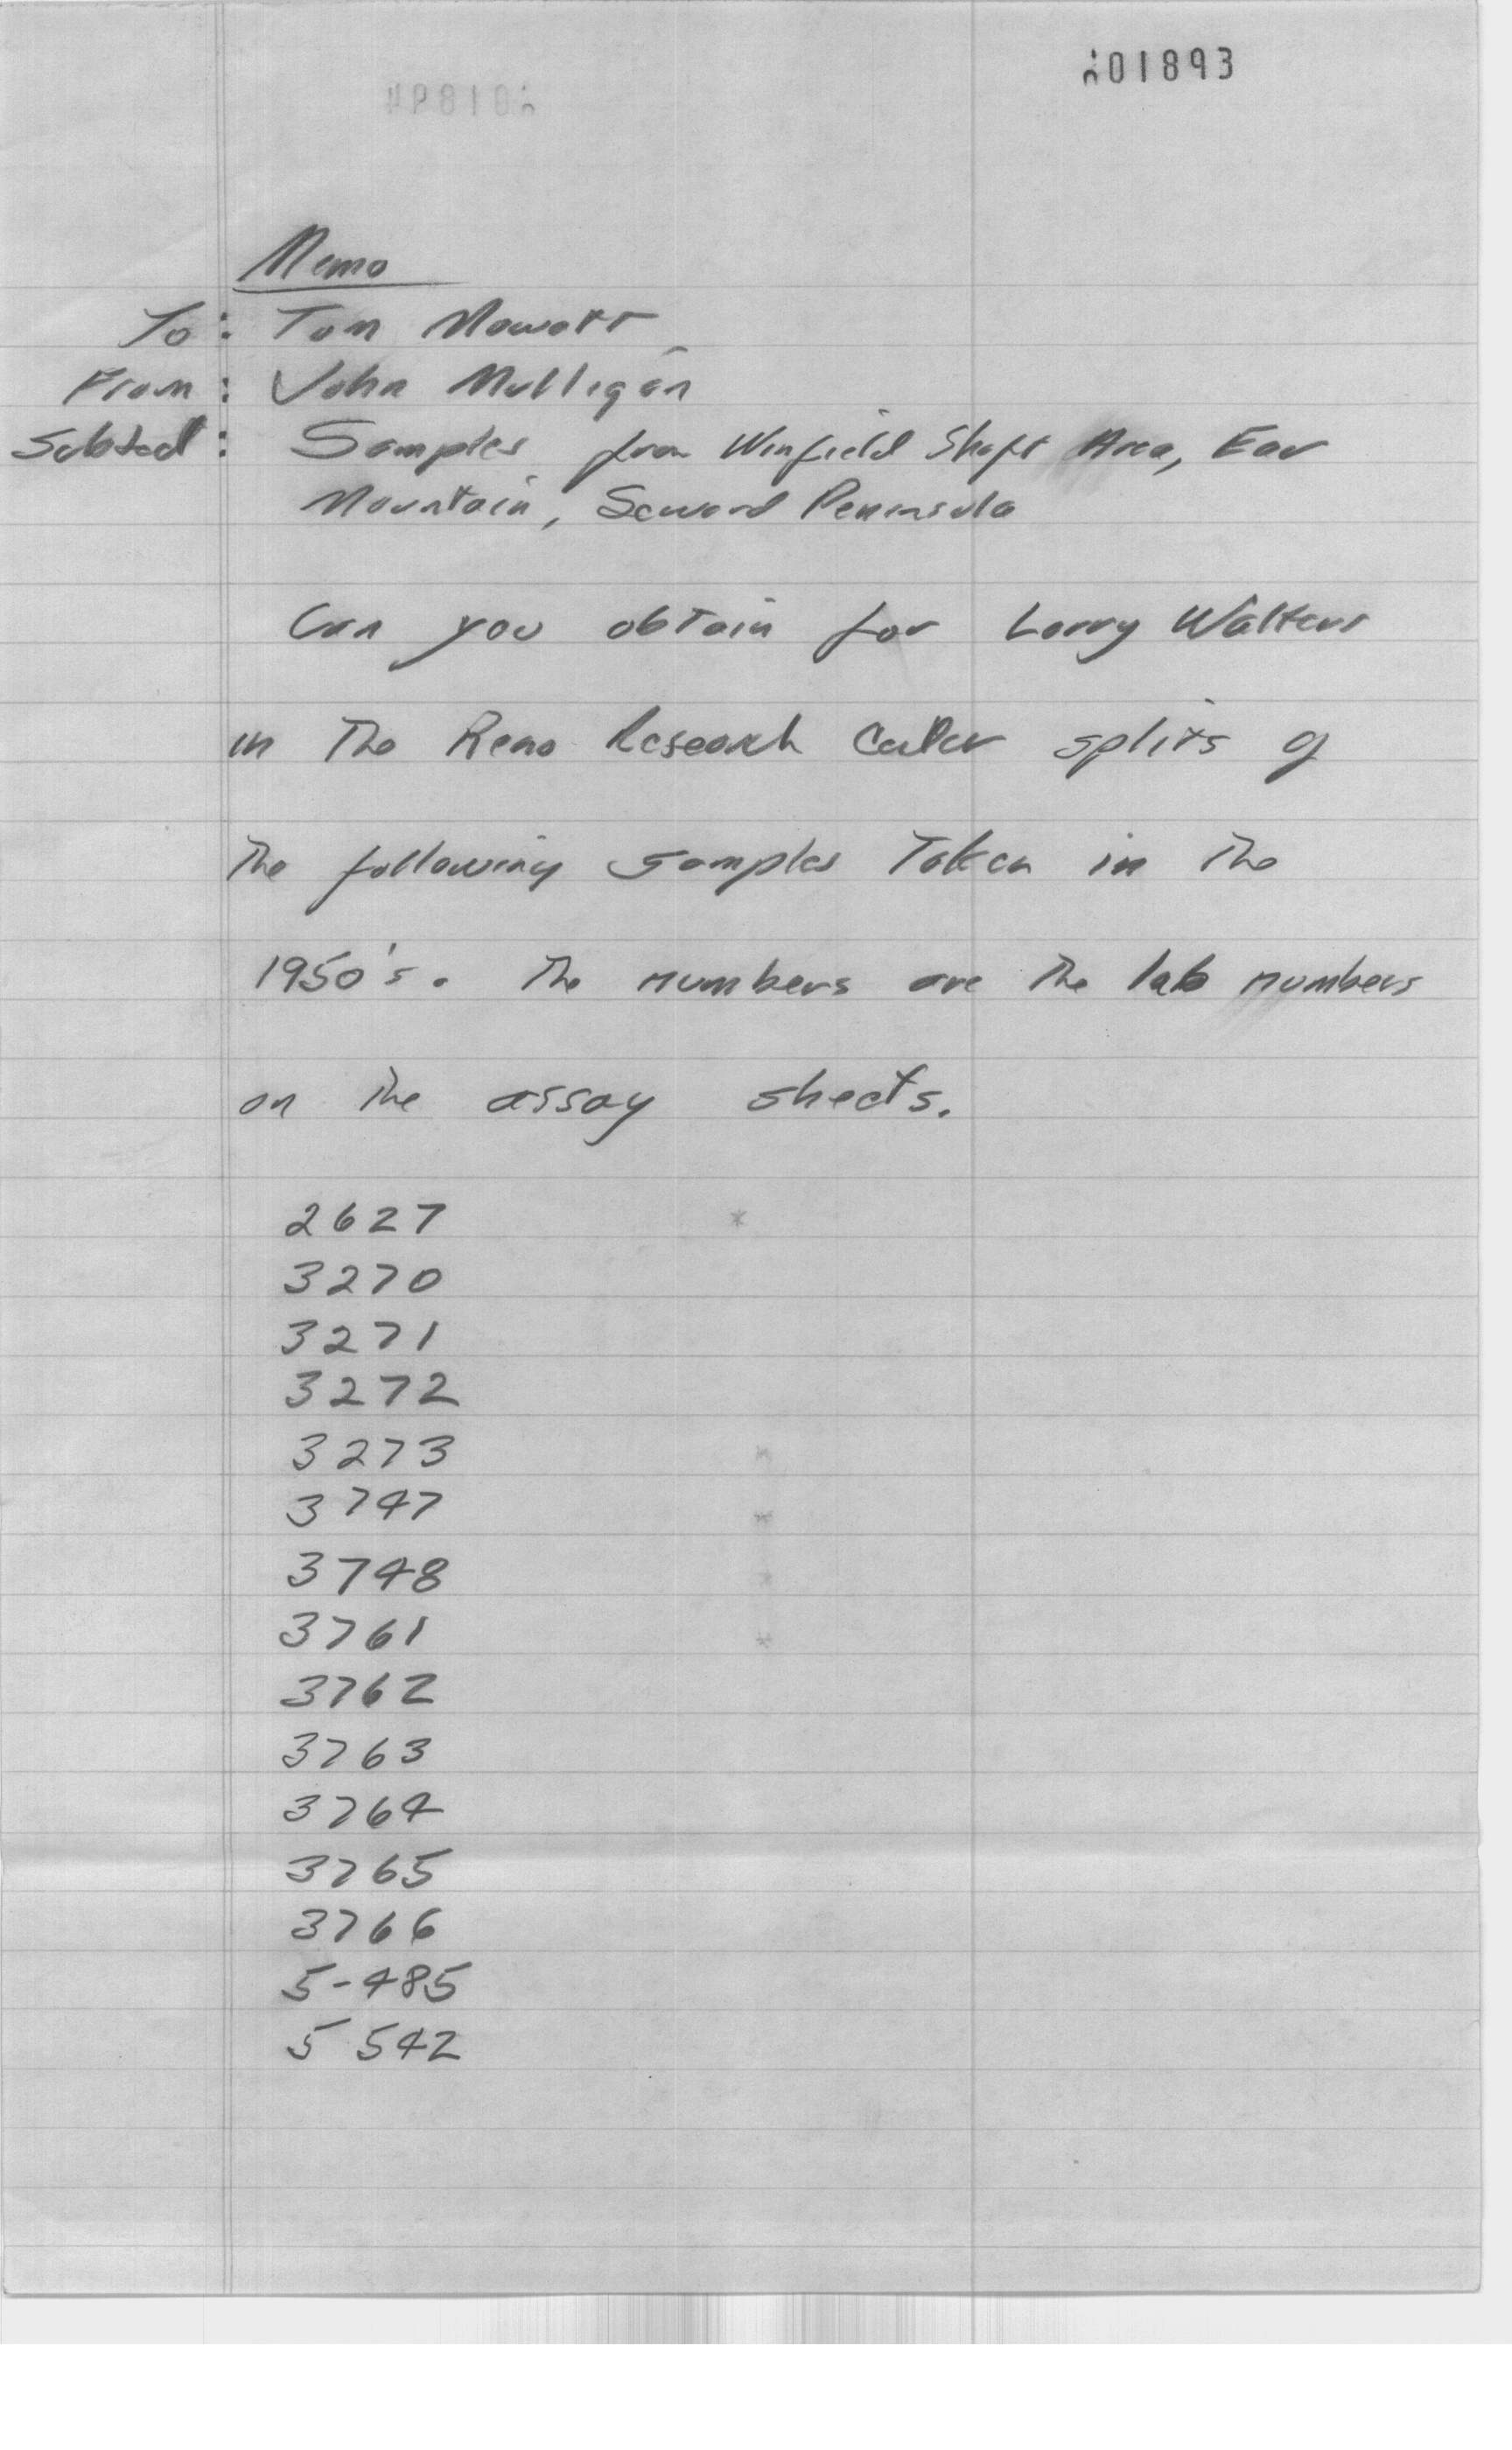 01893
Memo
To: Tom Mowatt
From: John Mulligan
Subject: Samples from Winfield Shaft Area, Ear
Mountain, Seward Peninsula
Can you obtain for Larry Walters
in the Reno Research Center splits of
the following samples taken in the
1950's. The numbers are the lab numbers
on the assay sheets.
2627 *
3270
3271
3272
3273 *
3747 *
3748 *
3761 *
3762
3763
3764
3765
3766
5-485
5 542